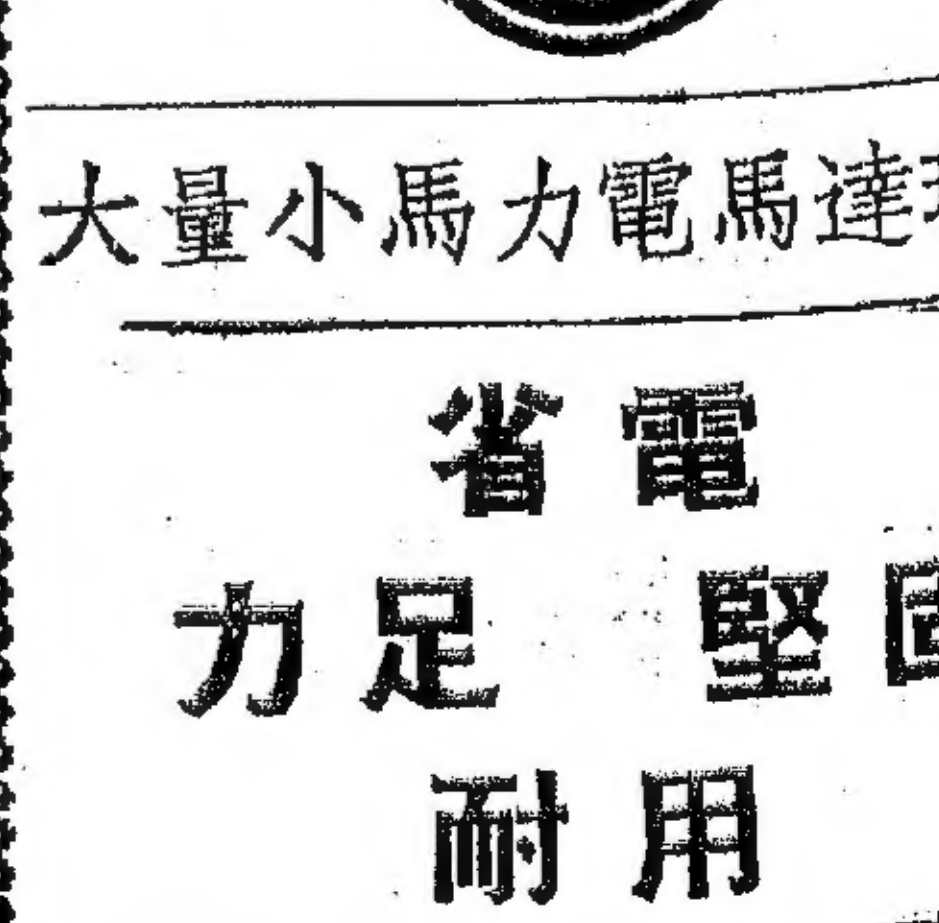 大量小馬力電馬達
省電
力足 堅固
耐用